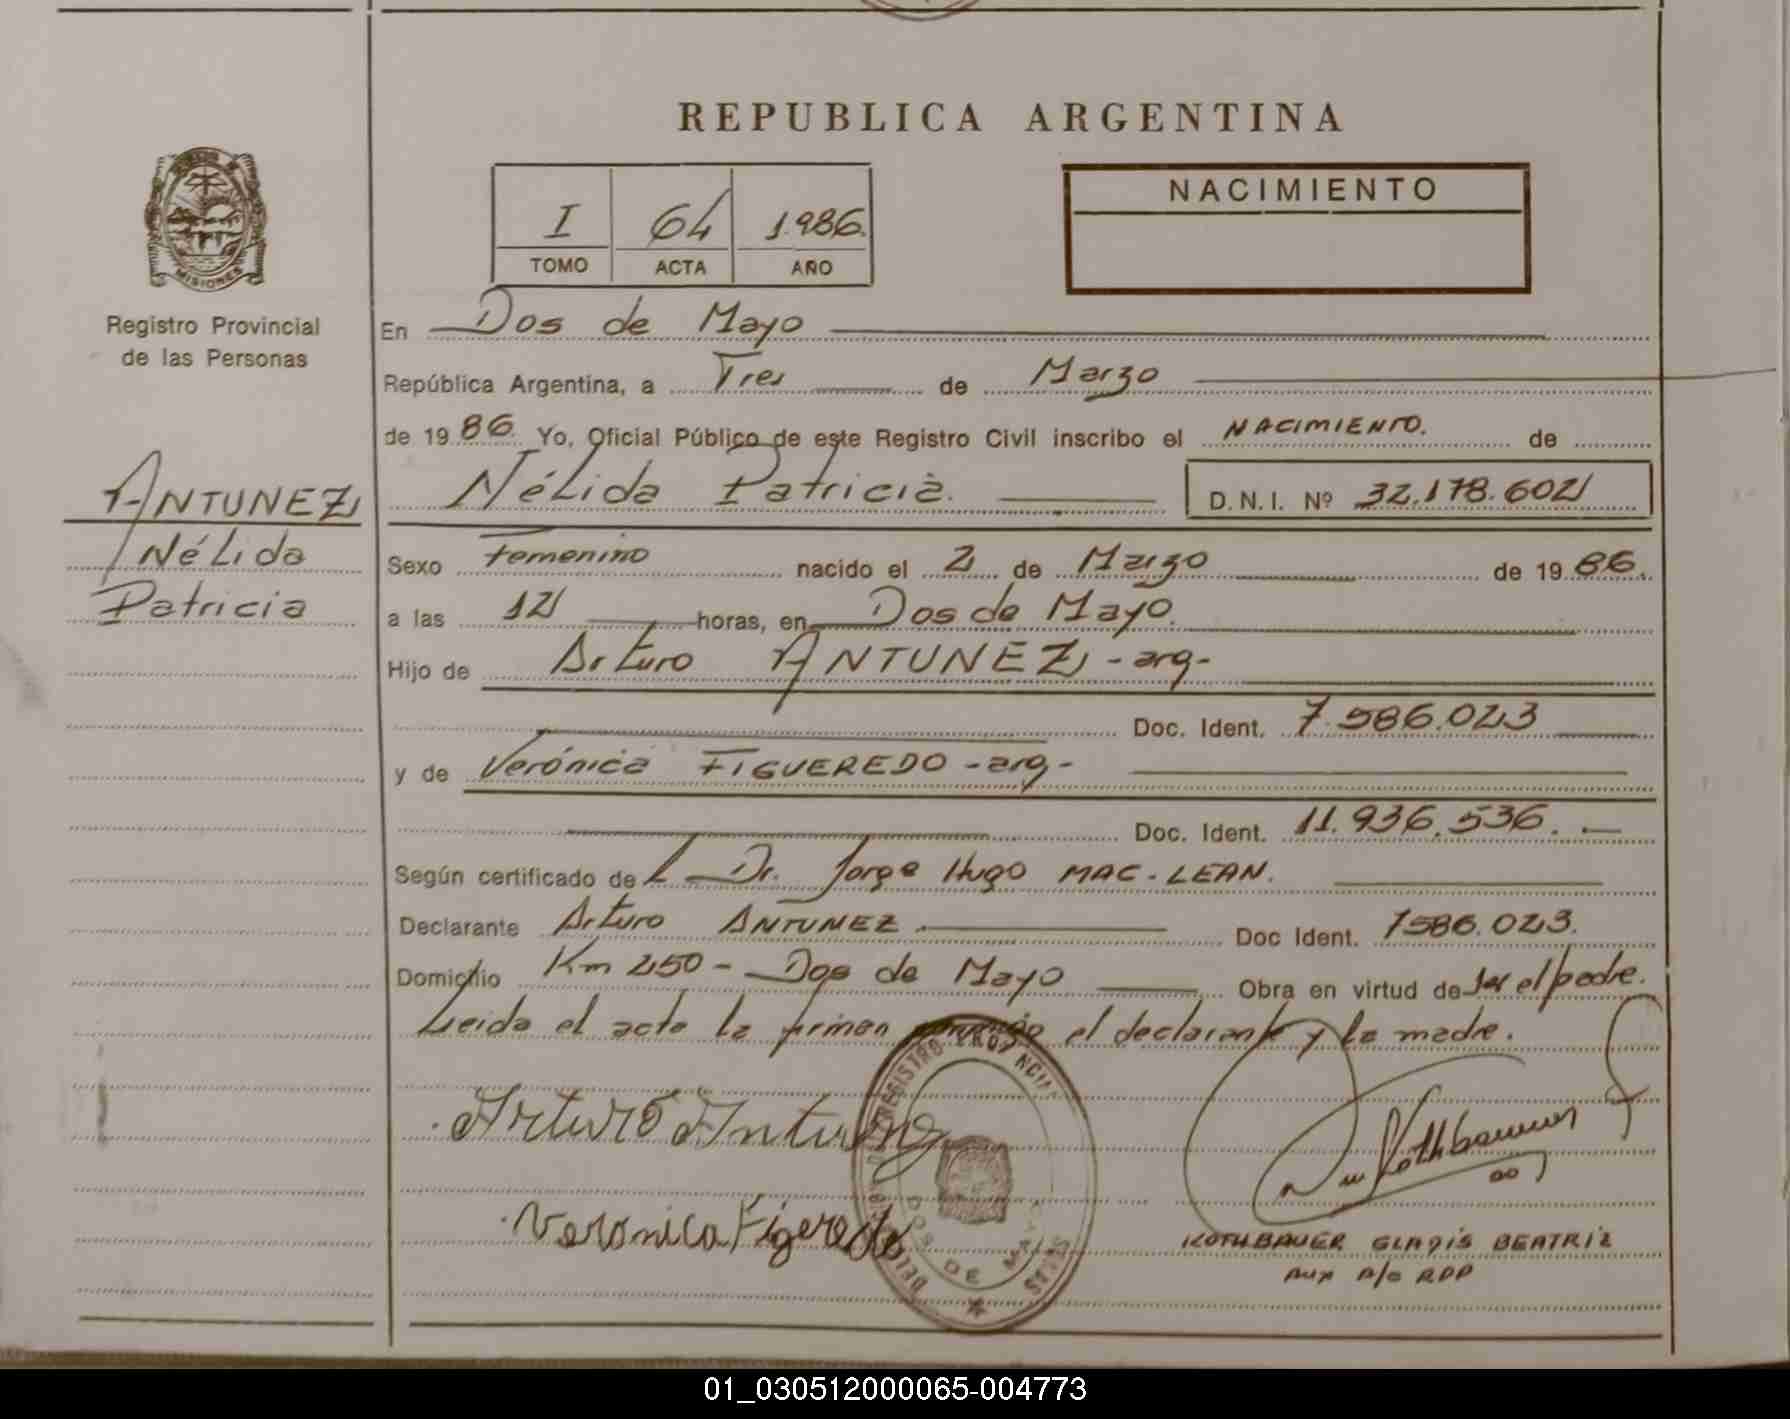 REPUBLICA ARGENTINA
MISIONES
Registro Provincial
de las Personas
I 64 1.986.
TOMO ACTA AÑO
NACIMIENTO
En Dos de Mayo
República Argentina, a Tres de Marzo
de 19 86. Yo, Oficial Público de este Registro Civil inscribo el NACIMIENTO. de
Nélida Patricia. D.N.I. Nº 32.178.602
ANTUNEZ
Nélida
Patricia
Sexo Femenino nacido el 2 de Marzo de 19 86.
a las 12 horas, en Dos de Mayo.
Hijo de Arturo ANTUNEZ -arg-
Doc. Ident. 7.586.023
y de Verónica FIGUEREDO -arg-
Doc. Ident. 11.936.536.
Según certificado de Dr. Jorge Hugo MAC-LEAN.
Declarante Arturo ANTUNEZ Doc Ident. 7586.023.
Domicilio Km 250 - Dos de Mayo Obra en virtud de Ser el padre.
Leida el acta la firman el declarante y la madre.
Arturo Antunez
Veronica Figeredo
Rothbauer
ROTHBAUER GLADIS BEATRIZ
AUX A/C RPP
REGISTRO PROVINCIAL
DOS DE MAYO
01_030512000065-004773